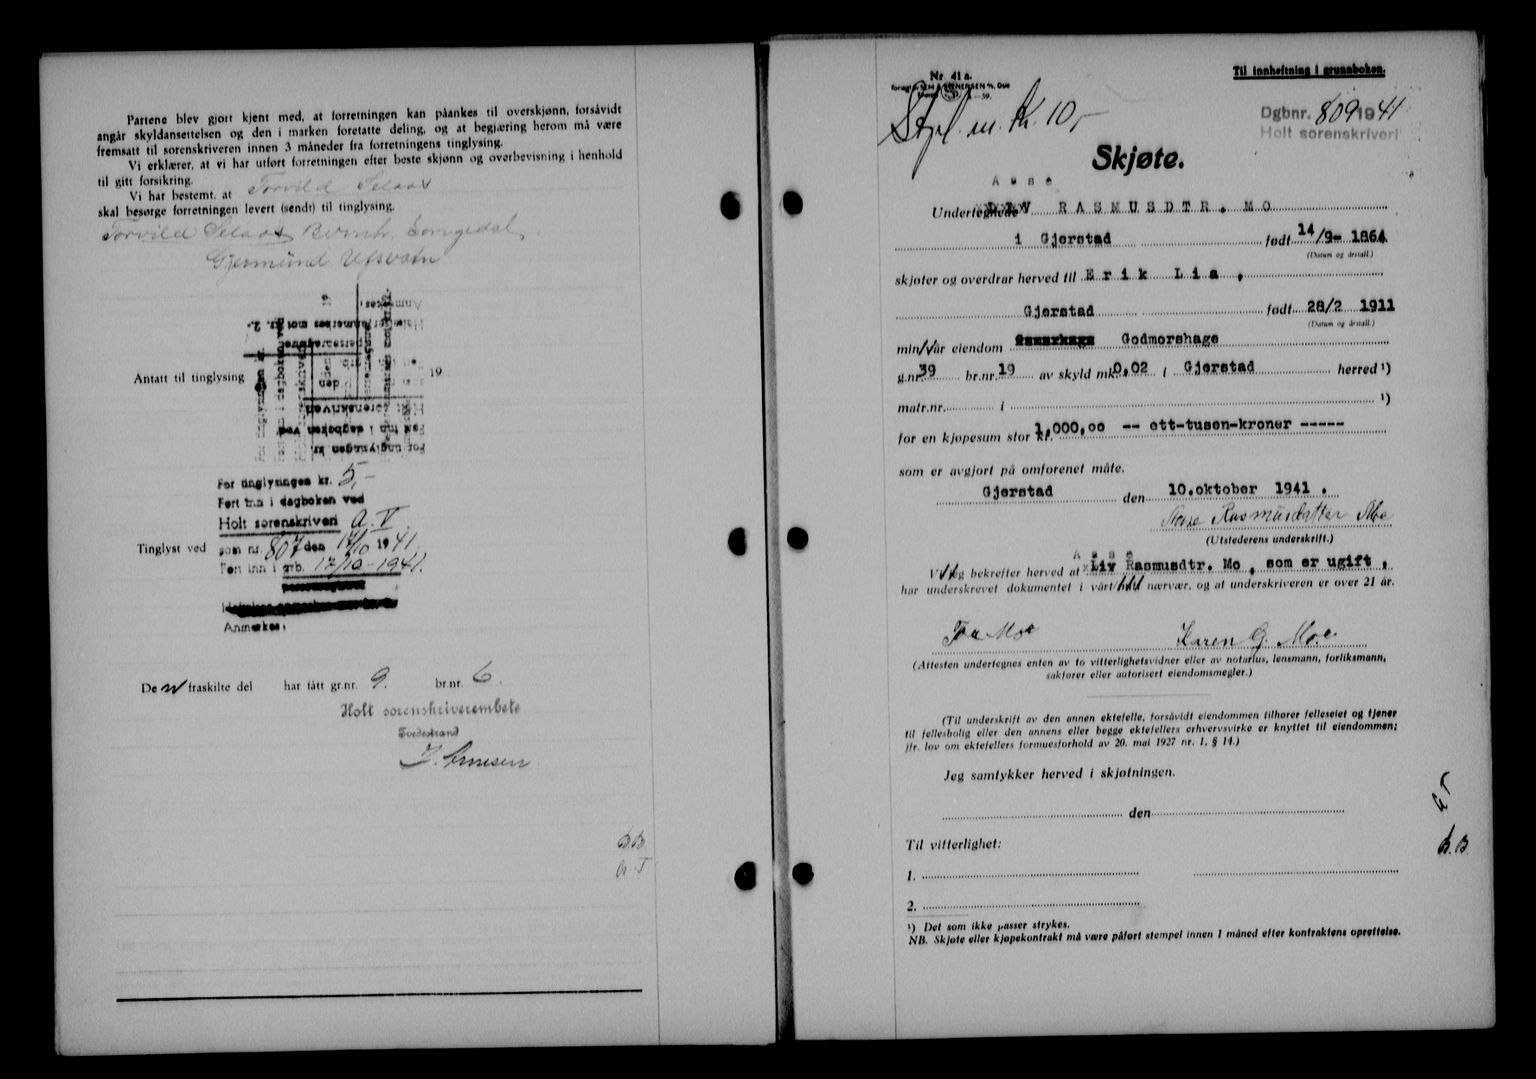 Partene blev gjort kjent med, at forretningen kan påankes til overskjønn, forsåvidt
angår skyldansettelsen og den i marken foretatte deling, og at begjæring herom må være
fremsatt til sorenskriveren innen 3 måneder fra forretningens tinglysing.
Vi erklærer, at vi har utført forretningen efter beste skjønn og overbevisning i henhold
til gitt forsikring.
Vi har bestemt, at Torvild Selaas
skal besørge forretningen levert (sendt) til tinglysing.
Torvild Selaas Bernh. Songedal
Gjermund Ufsvatn
Antatt til tinglysing 19
For tinglysingen kr. 5,-
Ført inn i dagboken ved
Holt sorenskriveri
Tinglyst ved som nr. 807 den 17/10 1941
Ført inn i grb. 17/10-1941.
Anmerkes:
De n fraskilte del har fått gr.nr. 9. br.nr. 6.
Holt sorenskriverembete
Tvedestrand
B.B.
Nr. 41 a.
Til innheftning i grunnboken.
Stpl. m. kr. 10,-
Dgbnr. 809 1941
Holt sorenskriveri
Skjøte.
Aase
Undertegnede RASMUSDTR. MO
i Gjerstad født 14/9- 1864
(Datum og årstall.)
skjøter og overdrar herved til Erik Lia,
Gjerstad født 28/2 1911
(Datum og årstall.)
min/vår eiendom Godmorshage
g.nr. 39 br.nr. 19 av skyld mk. 0,02 i Gjerstad herred ¹)
matr.nr. i ¹)
for en kjøpesum stor kr. 1.000,00 -- ett-tusen-kroner -----
som er avgjort på omforenet måte.
Gjerstad den 10.oktober 1941.
Aase Rasmusdatter Mo
(Utstederens underskrift.)
Aase
Vi/jeg bekrefter herved at Liv Rasmusdtr. Mo, som er ugift,
har underskrevet dokumentet i vårt/mitt nærvær, og at underskriveren er over 21 år.
Karen G. Moe
(Attesten undertegnes enten av to vitterlighetsvidner eller av notarius, lensmann, forliksmann,
sakfører eller autorisert eiendomsmegler.)
(Til underskrift av den annen ektefelle, forsåvidt eiendommen tilhører felleseiet og tjener
til fellesbolig eller den annens eller begge ektefellers erhvervsvirke er knyttet til eiendommen;
jfr. lov om ektefellers formuesforhold av 20. mai 1927 nr. 1, § 14.)
Jeg samtykker herved i skjøtningen.
den
Til vitterlighet:
B.B.
1.
2.
¹) Det som ikke passer strykes.
NB. Skjøte eller kjøpekontrakt må være påført stempel innen 1 måned efter kontraktens oprettelse.